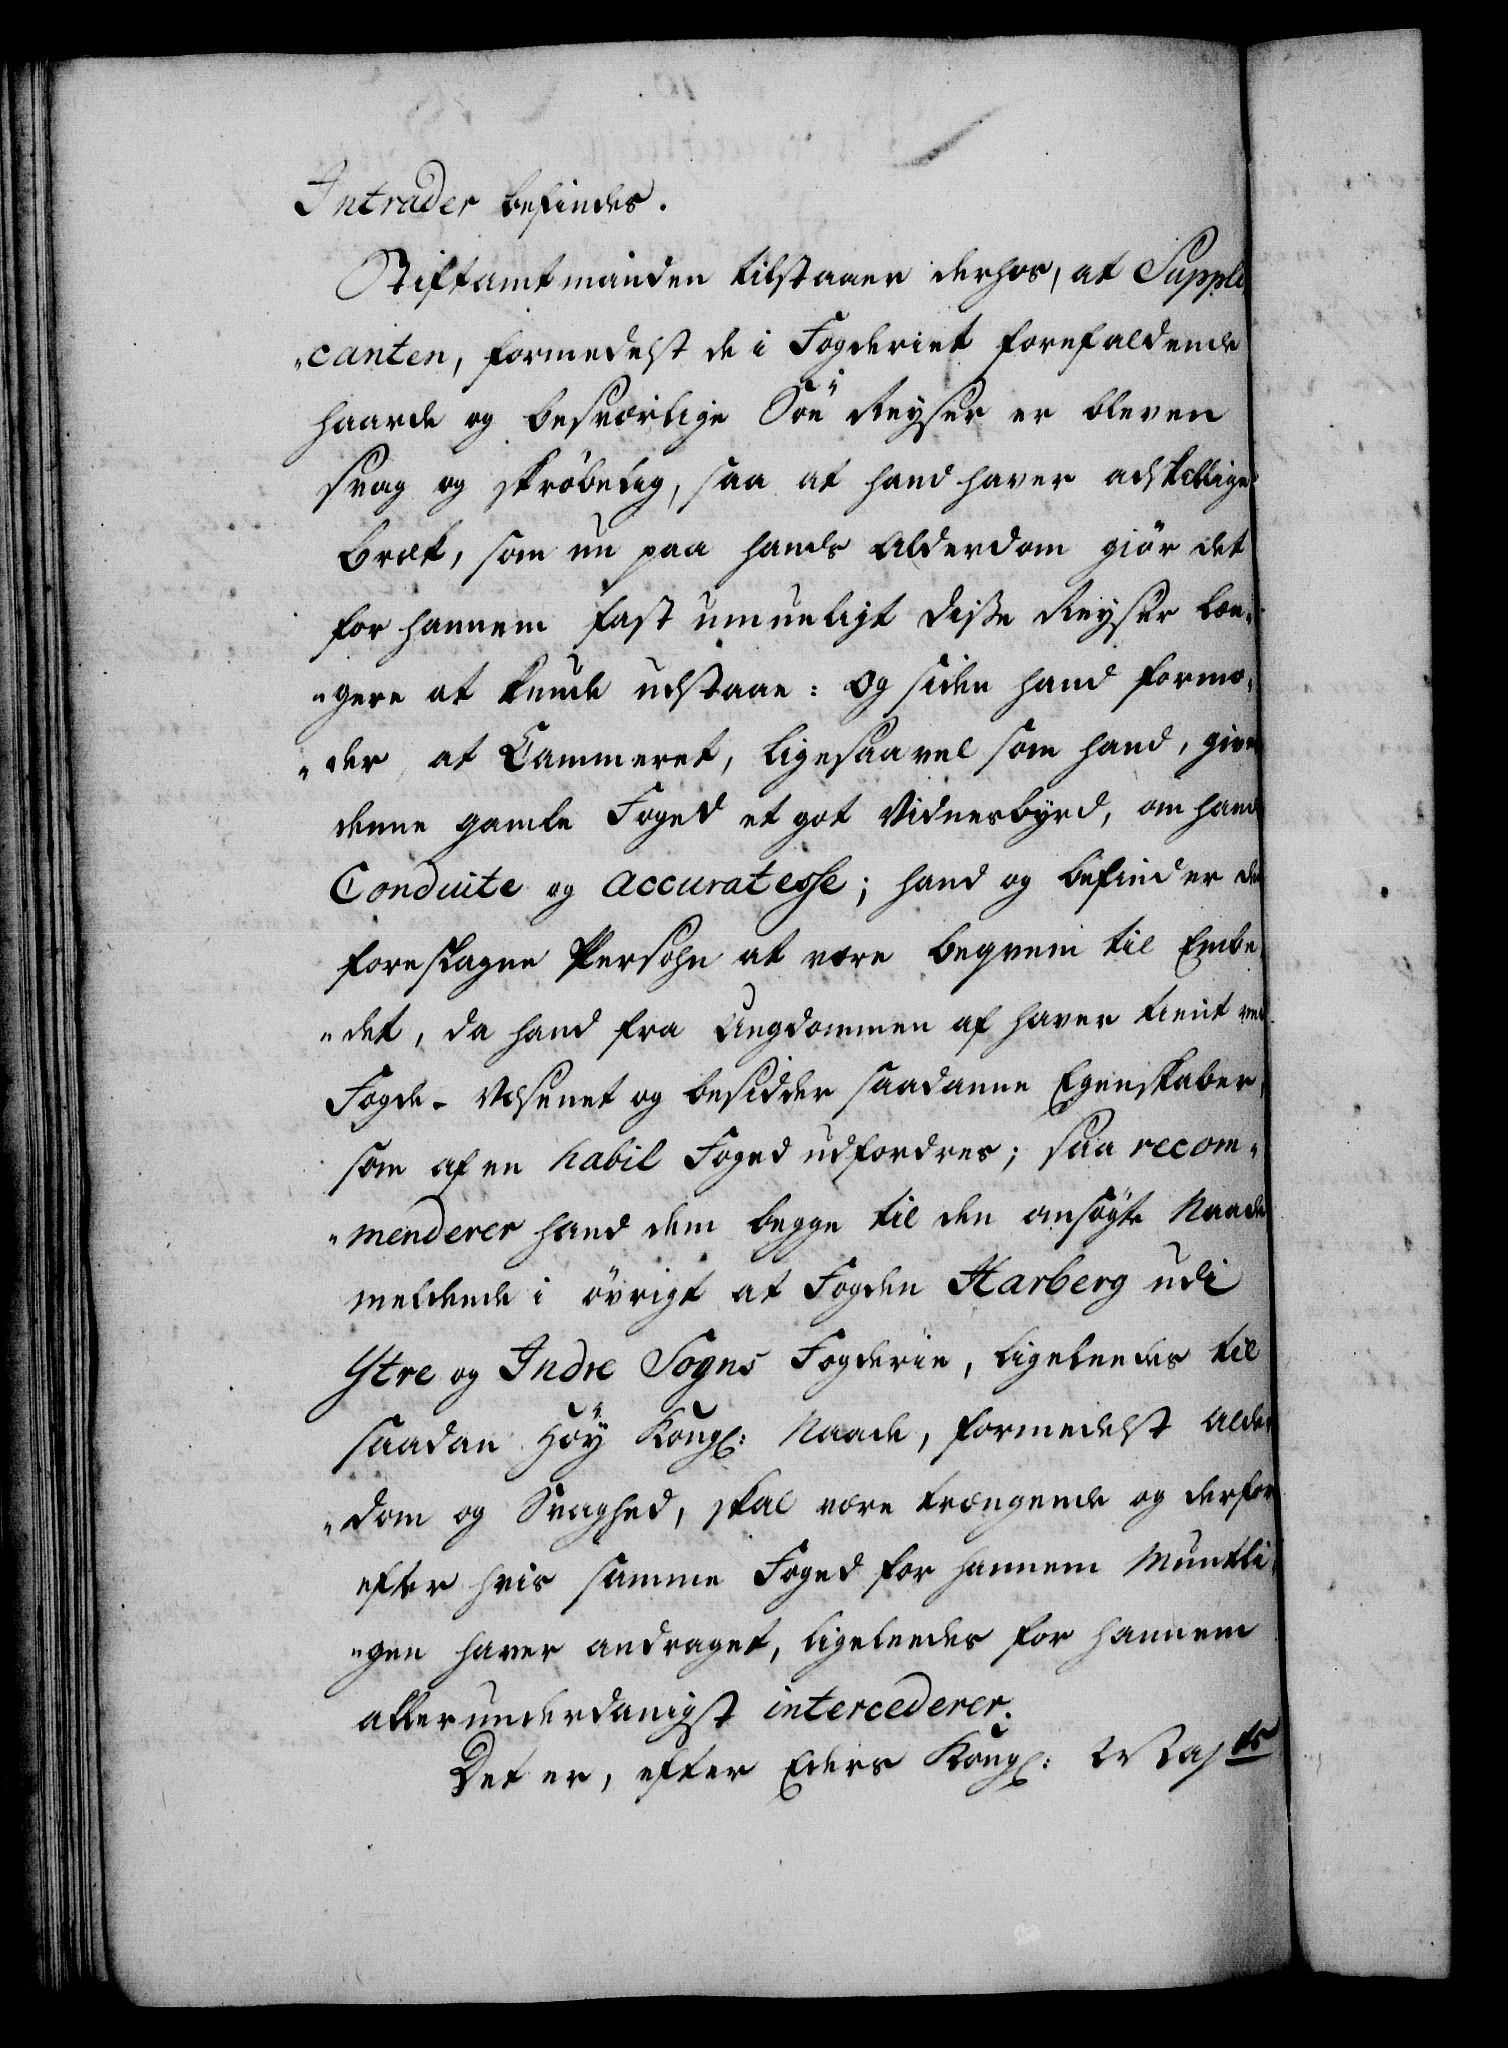 Intrader befindes.
Stiftamtmanden tilstaaer derhos, at Suppli
„canten, formedelst de i Fogderiet forefaldende
haarde og besværlige Söe Reyser er bleven
svag og skröbelig, saa at hand haver adskillige
Bræk, som nu paa hands Alderdom giör det
for hannem fast umueligt disse Reyser læn„
„gere at kunde udstaae: Og siden hand formo„
„der, at Cammeret, ligesaavel som hand, giver
denne gamle Foged et got Vidnesbyrd, om hands
Conduite og accuratesse; hand og befinder den
foreslagne Persohn at være beqvem til Embe„
„det, da hand fra Ungdommen af haver tient ved
Fogde-Væsenet og besidder saadanne Egenskaber,
som af en habil Foged udfordres; saa recom„
„menderer hand dem begge til den ansögte Naade
meldende i övrigt at Fogden Harberg udi
Ytre og Indre Sogns Fogderie, ligeleedes til
saadan Höy Kongl: Naade, formedelst Alder
„dom og Svaghed, skal være trængende og derfor
efter hvis samme Foged for hannem Muntli„
„gen haver andraget, ligeleedes for hannem
allerunderdanigst intercederer.
Det er, efter Eders Kongl: Mayts